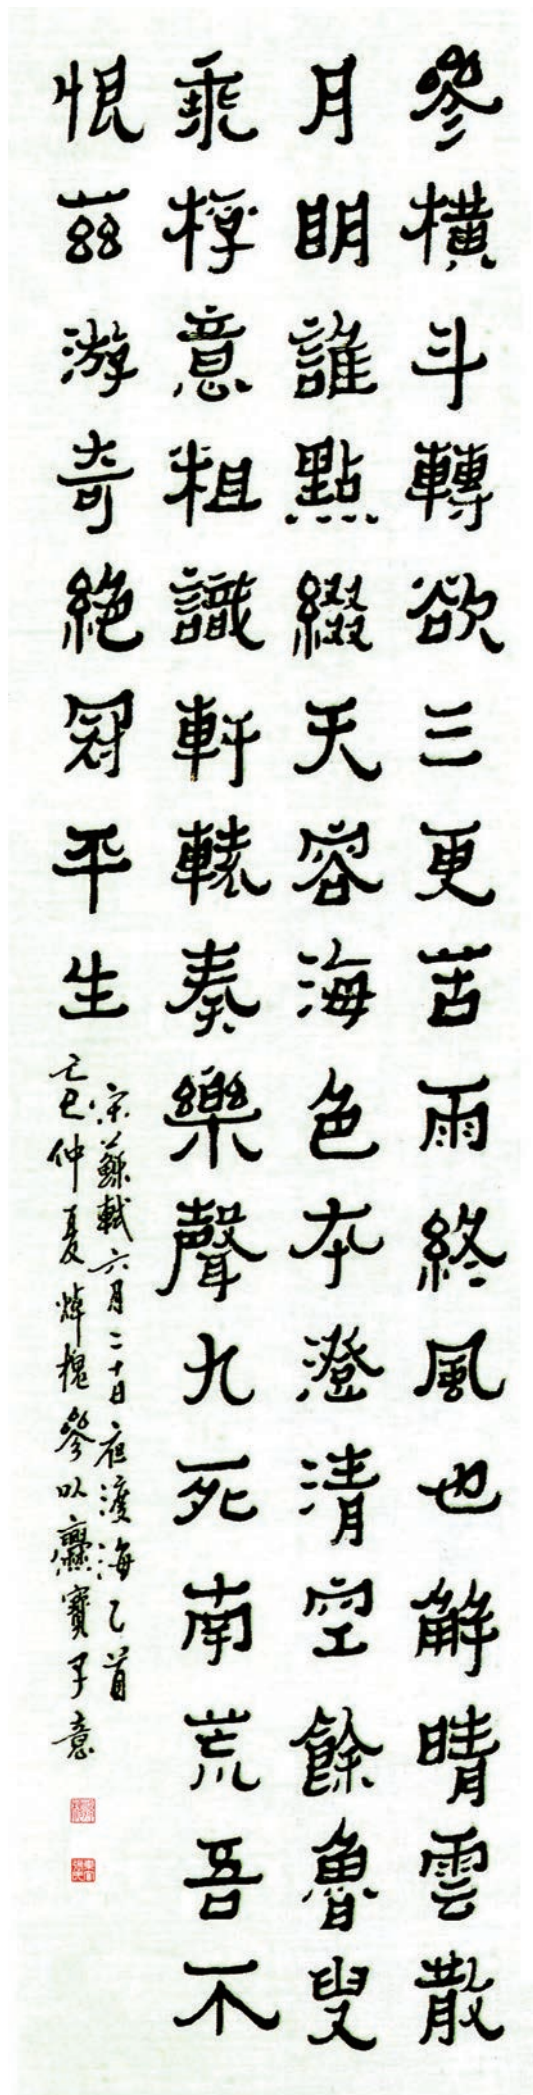 參橫斗轉欲三更苦雨終風也解晴雲散
月明誰點綴天容海色本澄清空餘魯叟
乘桴意粗識軒轅奏樂聲九死南荒吾不
恨茲游奇絕冠平生
宋蘇軾六月二十日夜渡海乙首
己巳仲夏煒槐參以爨寶子意